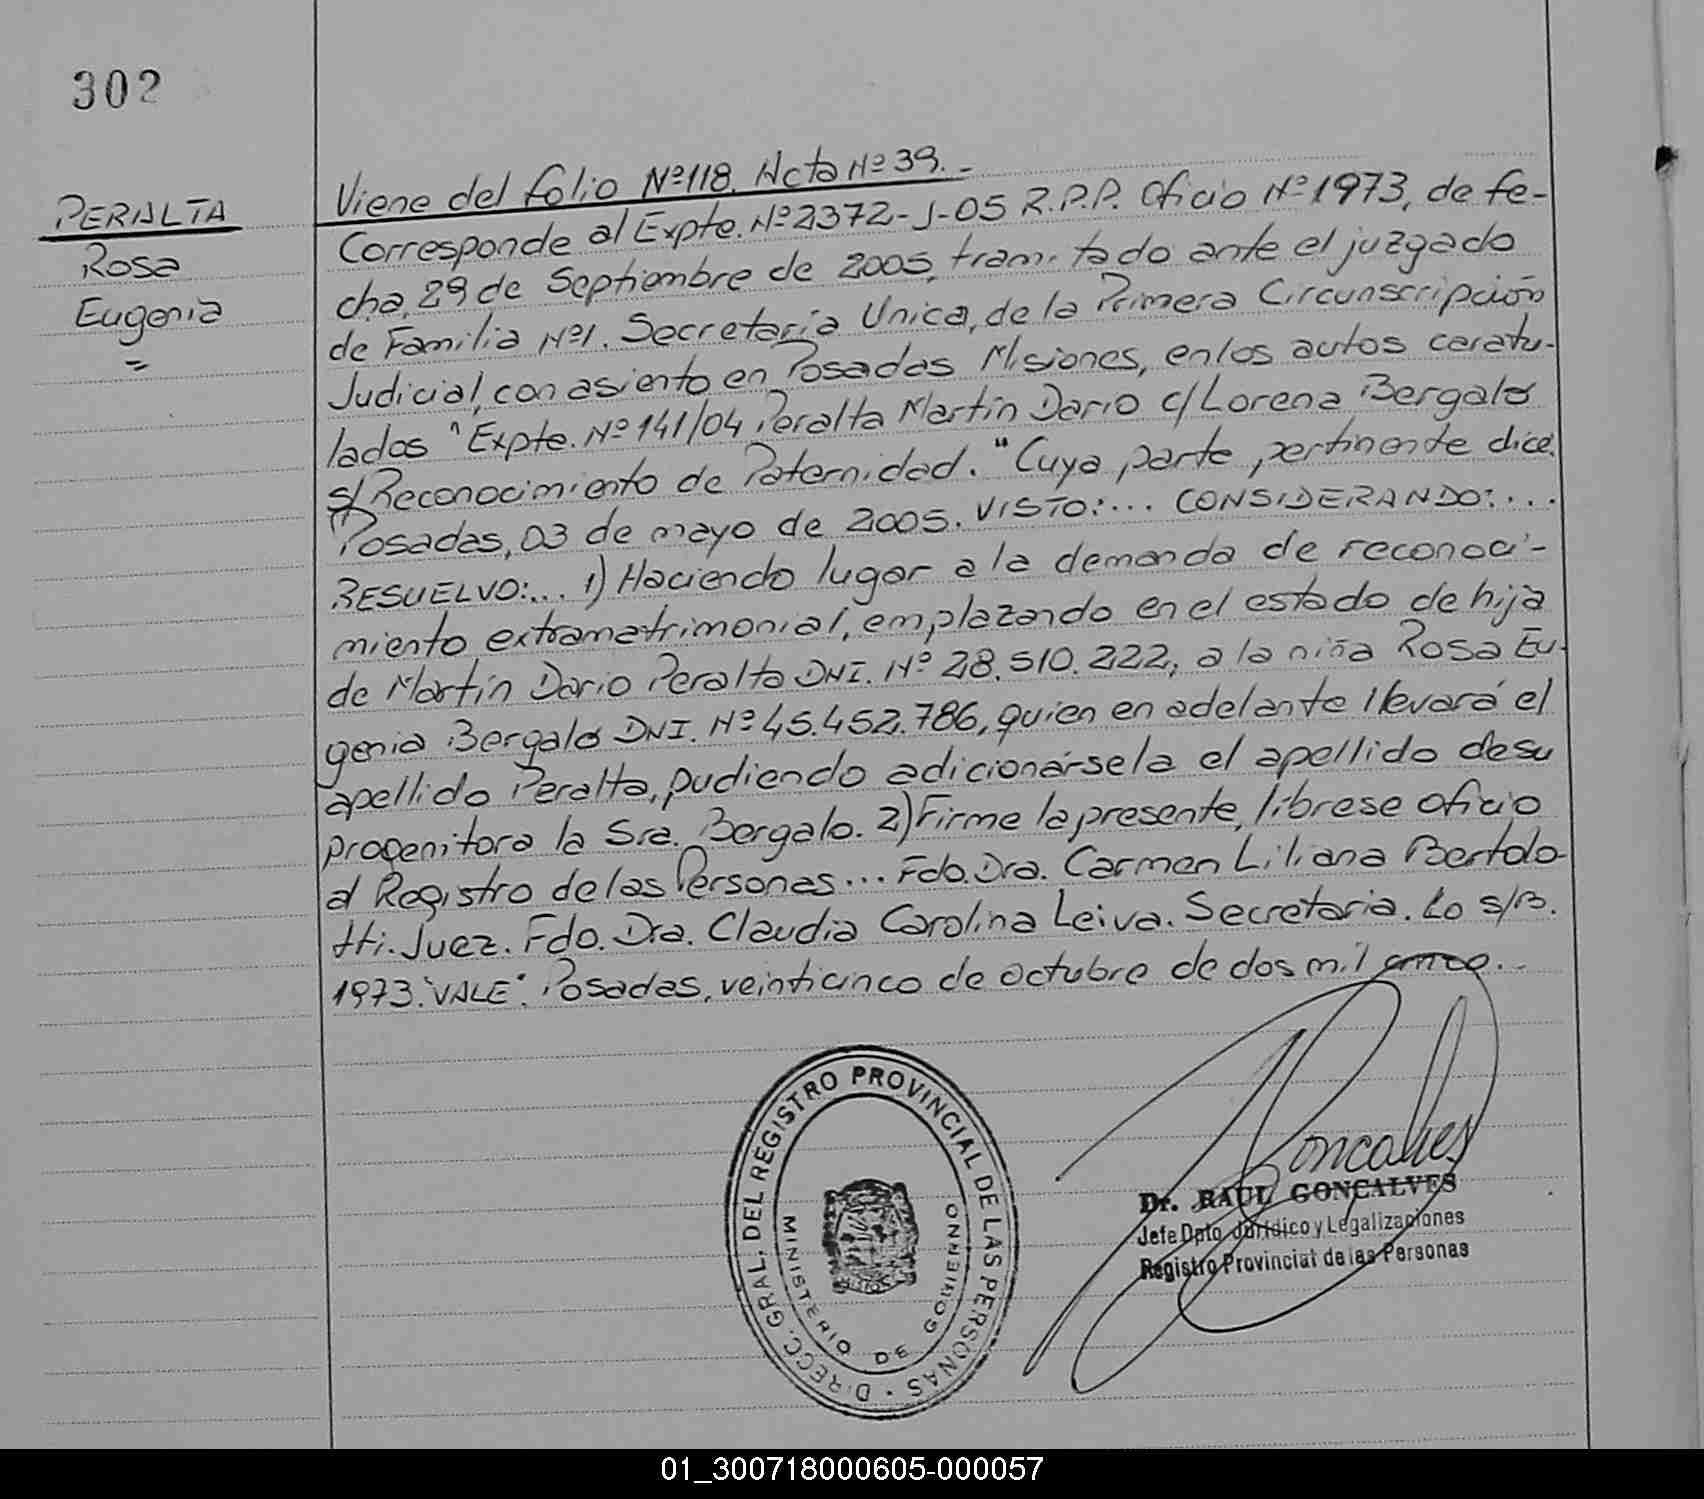 302
PERALTA
Rosa
Eugenia
Viene del folio Nº118. Acta Nº 39.-
Corresponde al Expte. Nº 2372-J-05 R.P.P. Oficio Nº 1973, de fe-
cha, 29 de Septiembre de 2005, tramitado ante el juzgado
de Familia Nº1. Secretaría Unica, de la Primera Circunscripción
Judicial, con asiento en Posadas Misiones, en los autos caratu-
lados "Expte. Nº 141/04 Peralta Martín Dario c/ Lorena Bergalo
s/ Reconocimiento de Paternidad." Cuya parte pertinente dice.
"Posadas, 03 de mayo de 2005. VISTO:... CONSIDERANDO:...
RESUELVO:... 1) Haciendo lugar a la demanda de reconoci-
miento extramatrimonial, emplazando en el estado de hija
de Martín Dario Peralta DNI. Nº 28.510.222, a la niña Rosa Eu-
genia Bergalo DNI. Nº 45.452.786, quien en adelante llevará el
apellido Peralta, pudiendo adicionársela el apellido de su
progenitora la Sra. Bergalo. 2) Firme la presente, líbrese oficio
al Registro de las Personas... Fdo. Dra. Carmen Liliana Bertolo-
tti. Juez. Fdo. Dra. Claudia Carolina Leiva. Secretaria. Lo s/B.
1973. "VALE". Posadas, veinticinco de octubre de dos mil cinco..
DIRECC. GRAL. DEL REGISTRO PROVINCIAL DE LAS PERSONAS
MINISTERIO DE GOBIERNO
Goncalves
Dr. RAUL GONCALVES
Jefe Dpto Jurídico y Legalizaciones
Registro Provincial de las Personas
01_300718000605-000057